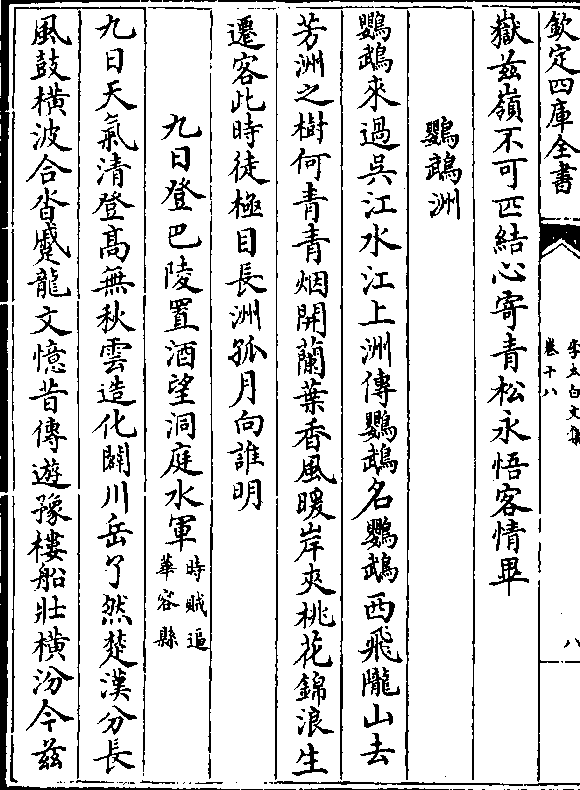 欽定四庫全書
李太白文集
卷十八
八
嶽茲嶺不可匹結心寄青松永悟客情畢
鸚鵡洲
鸚鵡來過吳江水江上洲傳鸚鵡名鸚鵡西飛隴山去
芳洲之樹何青青烟開蘭葉香風暖岸夾桃花錦浪生
遷客此時徒極目長洲孤月向誰明
九日登巴陵置酒望洞庭水軍時賊逼華容縣
九日天氣清登髙無秋雲造化闢川岳了然楚漢分長
風鼓橫波合沓蹙龍文憶昔傳遊豫樓船壯橫汾今茲